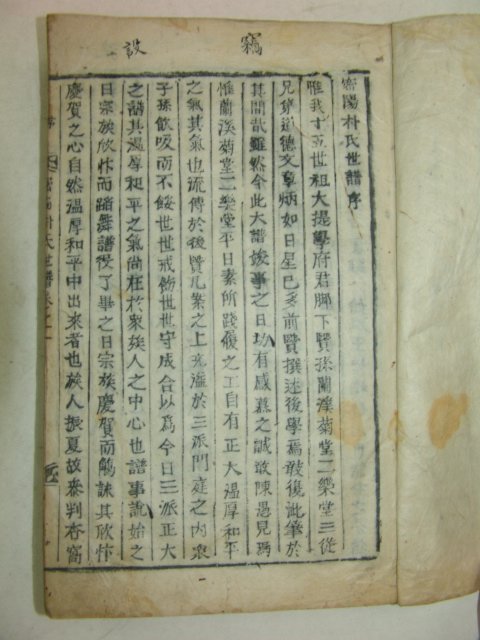 竊 設
密陽朴氏世譜序
惟我十五世祖大提學府君脚下賢孫蘭溪菊堂二樂堂三從
兄弟道德文章炳如日星已多前賢撰述後學焉敢復泚筆於
其間哉雖然今此大譜竣事之日切有感慕之誠敢陳愚見焉
惟蘭溪菊堂二樂堂平日素所踐履之工自有正大溫厚和平
之氣其氣也流傳於後賢凡業之上充溢於三派門庭之內衆
子孫飮吸而不餒世世戒飭世世守成合以爲今日三派正大
之譜其溫厚和平之氣尙在於衆族人之中心也譜事說始之
日宗族欣忭而踏舞譜役了畢之日宗族慶賀而觴詠其欣忭
慶賀之心自然溫厚和平中出來者也族人振夏故參判杏窩
朴氏世譜卷之一